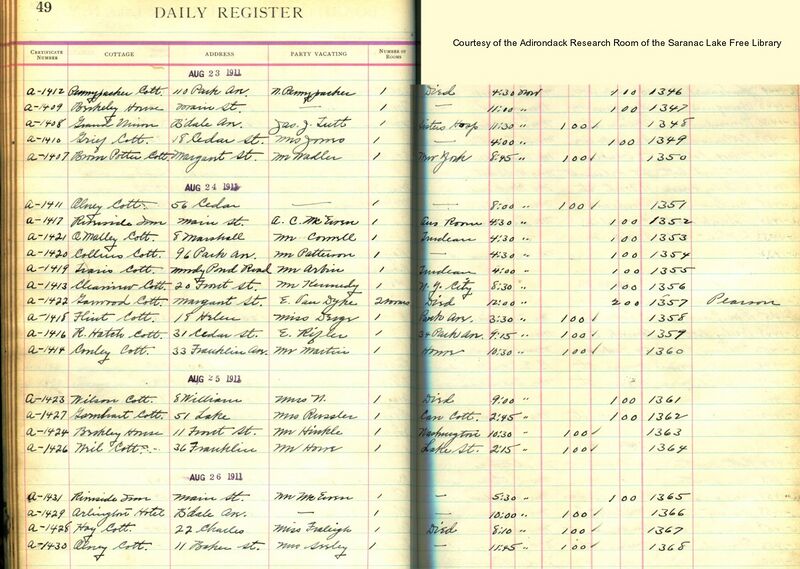 49
DAILY REGISTER
Courtesy of the Adirondack Research Room of the Saranac Lake Free Library
CERTIFICATE NUMBER COTTAGE ADDRESS PARTY VACATING NUMBER OF ROOMS
AUG 23 1911
A-1412 Pennypacker Cott. 110 Park Av. N. Pennypacker 1 Died 4:30 1 00 1346
A-1409 Berkeley House Main St. — 1 — 11:00 " 1 00 1347
A-1408 Grand Union B'dale Av. Jas. J. Tutt 1 Sisters Hosp 11:30 " 1 00 ✓ 1348
A-1410 Grief Cott. 18 Cedar St. Mrs 1 — 4:00 " 1 00 1349
A-1407 Potter Cott. Margaret St. Mr Wadler 1 New York 8:45 " 1 00 ✓ 1350
AUG 24 1911
A-1411 Olney Cott. 56 Cedar — 1 — 8:00 " 1 00 ✓ 1351
A-1417 Riverside Inn Main St. A. C. McEwen 1 Room 4:30 " 1 00 1352
A-1421 O'Malley Cott. 8 Marshall Mr Connell 1 Trudeau 4:30 " 1 00 1353
A-1420 Collins Cott. 96 Park Av. Mr Patterson 1 — 4:30 " 1 00 1354
A-1419 Cott. Moody Pond Road Mr 1 Trudeau 4:00 " 1 00 1355
A-1413 Cott. 20 Front St. Mr Kennedy 1 N.Y. City 8:30 " 1 00 1356
A-1422 Garwood Cott. Margaret St. E. Van Dyke 2 rooms Died 12:00 " 2 00 1357 Pearson
A-1418 Flint Cott. 18 Helen Miss 1 Park Av. 3:30 " 1 00 ✓ 1358
A-1416 R. Hatch Cott. 31 Cedar St. E. 1 34 Park Av. 9:15 " 1 00 ✓ 1359
A-1414 Conley Cott. 33 Franklin Av. Mr Martin 1 Home 10:30 " 1 00 ✓ 1360
AUG 25 1911
A-1423 Wilson Cott. 8 William Miss N. 1 Died 9:00 " 1 00 1361
A-1427 Cott. 51 Lake Mrs Russler 1 Cott. 2:45 " 1 00 1362
A-1424 Berkeley House 11 Front St. Mr Hinkle 1 Washington 10:30 " 1 00 ✓ 1363
A-1426 Cott. 36 Franklin Mr Howe 1 Lake St. 2:15 " 1 00 ✓ 1364
AUG 26 1911
A-1431 Riverside Inn Main St. Mr McEwen 1 — 5:30 " 1 00 1365
A-1429 Arlington Hotel B'dale Av. — 1 — 10:00 " 1 00 ✓ 1366
A-1428 Hay Cott. 22 Charles Miss Fraleigh 1 Died 8:10 " 1 00 ✓ 1367
A-1430 Olney Cott. 11 Baker St. 1 — 11:45 " 1 00 ✓ 1368